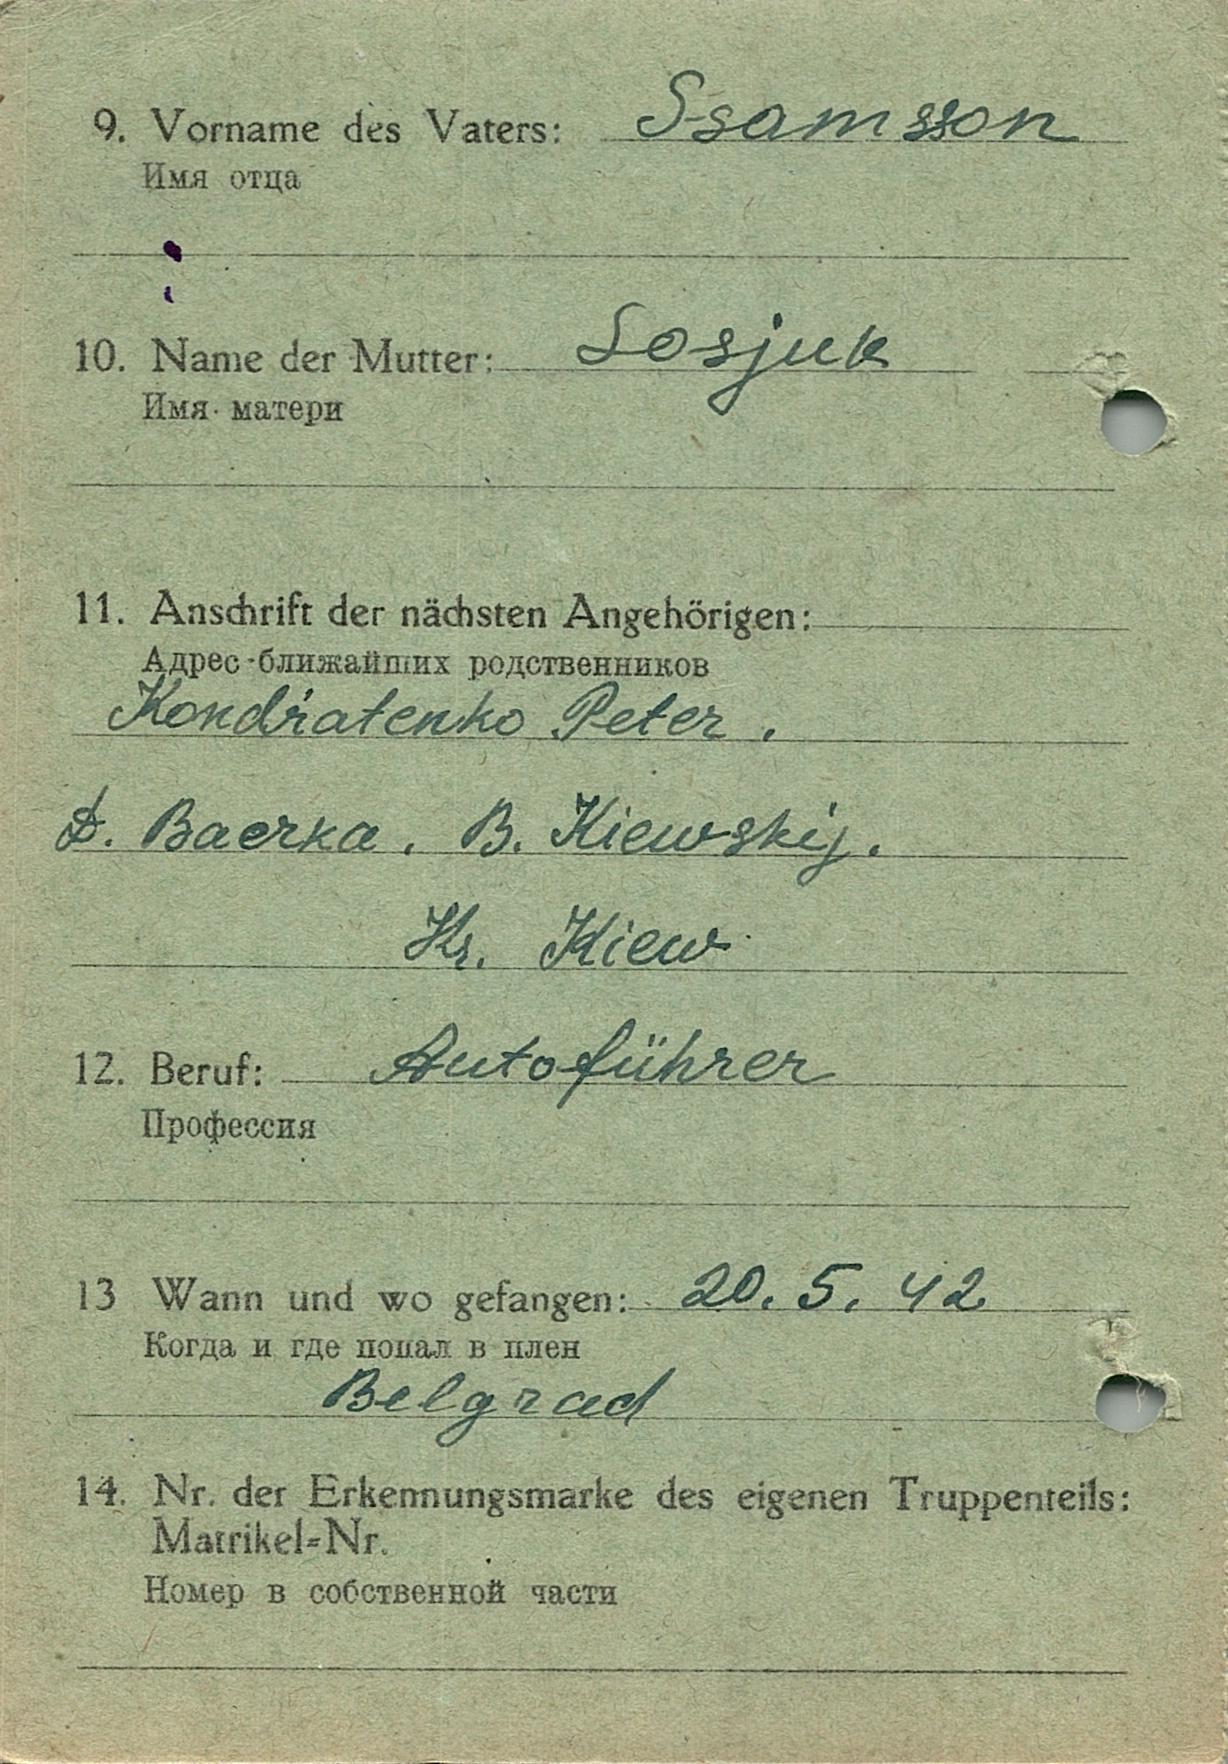 9. Vorname des Vaters: Ssamsson
Имя отца
10. Name der Mutter: Sosjuk
Имя матери
11. Anschrift der nächsten Angehörigen:
Адрес ближайших родственников
Kondratenko Peter.
D. Baerka. B. Kiewskij.
Kr. Kiew
12. Beruf: Autoführer
Профессия
13 Wann und wo gefangen: 20. 5. 42
Когда и где попал в плен
Belgrad
14. Nr. der Erkennungsmarke des eigenen Truppenteils:
Matrikel-Nr.
Номер в собственной части